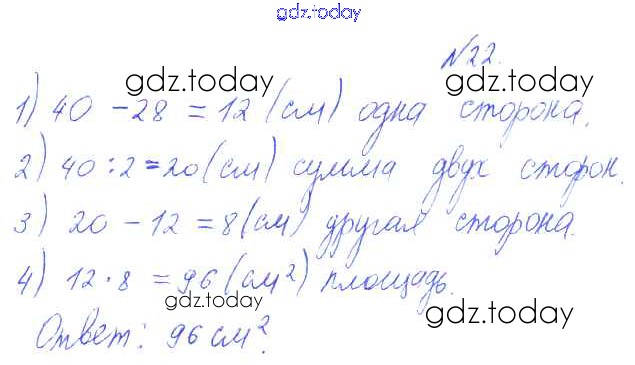 gdz.today
№22.
gdz.today gdz.today
1) 40 - 28 = 12 (см) одна сторона.
2) 40 : 2 = 20 (см) сумма двух сторон.
3) 20 - 12 = 8 (см) другая сторона.
4) 12 · 8 = 96 (см²) площадь.
gdz.today gdz.today
Ответ: 96 см².